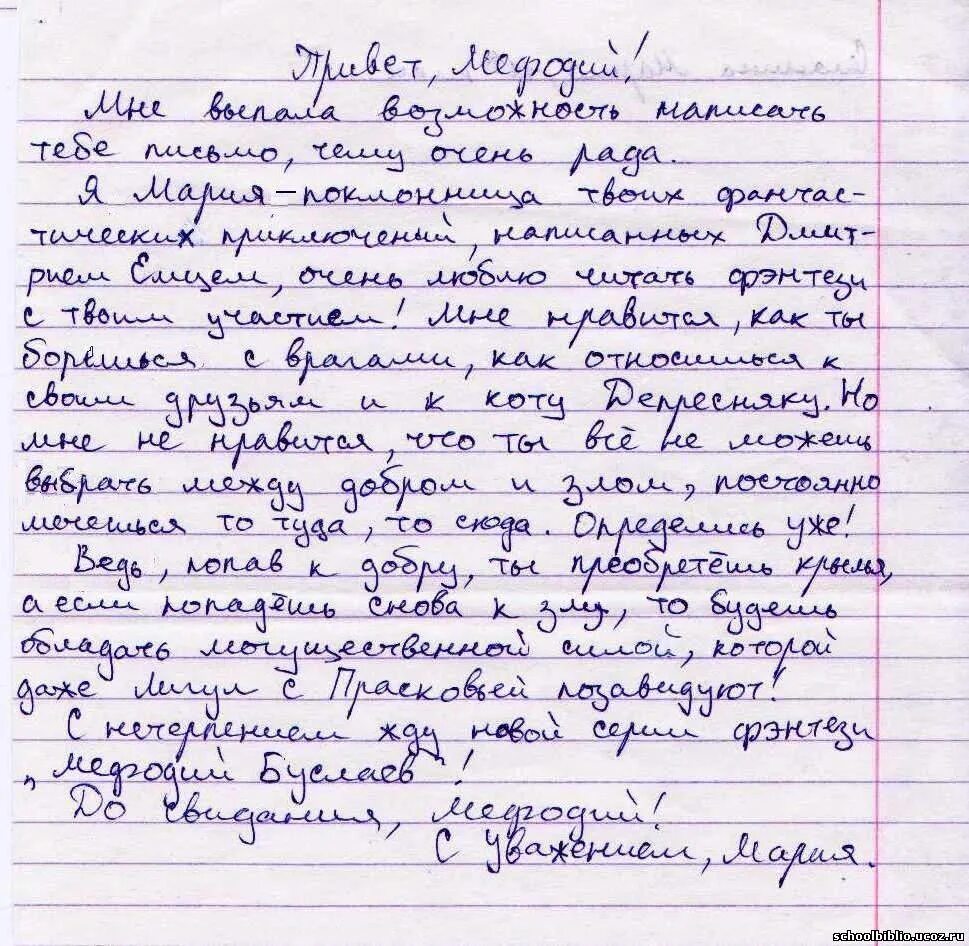 Привет, Мефодий!
Мне выпала возможность написать
тебе письмо, чему очень рада.
Я Мария – поклонница твоих фантас-
тических приключений, написанных Дмит-
рием Емцем, очень люблю читать фэнтези
с твоим участием! Мне нравится, как ты
борешься с врагами, как относишься к
своим друзьям и к коту Депресняку. Но
мне не нравится, что ты всё не можешь
выбрать между добром и злом, постоянно
мечешься то туда, то сюда. Определись уже!
Ведь, попав к добру, ты преобретёшь крылья,
а если попадёшь снова к злу, то будешь
обладать могущественной силой, которой
даже Лигул с Прасковьей позавидуют!
С нетерпением жду новой серии фэнтези
„Мефодий Буслаев"!
До свидания, Мефодий!
С Уважением, Мария.
schoolbiblio.ucoz.ru